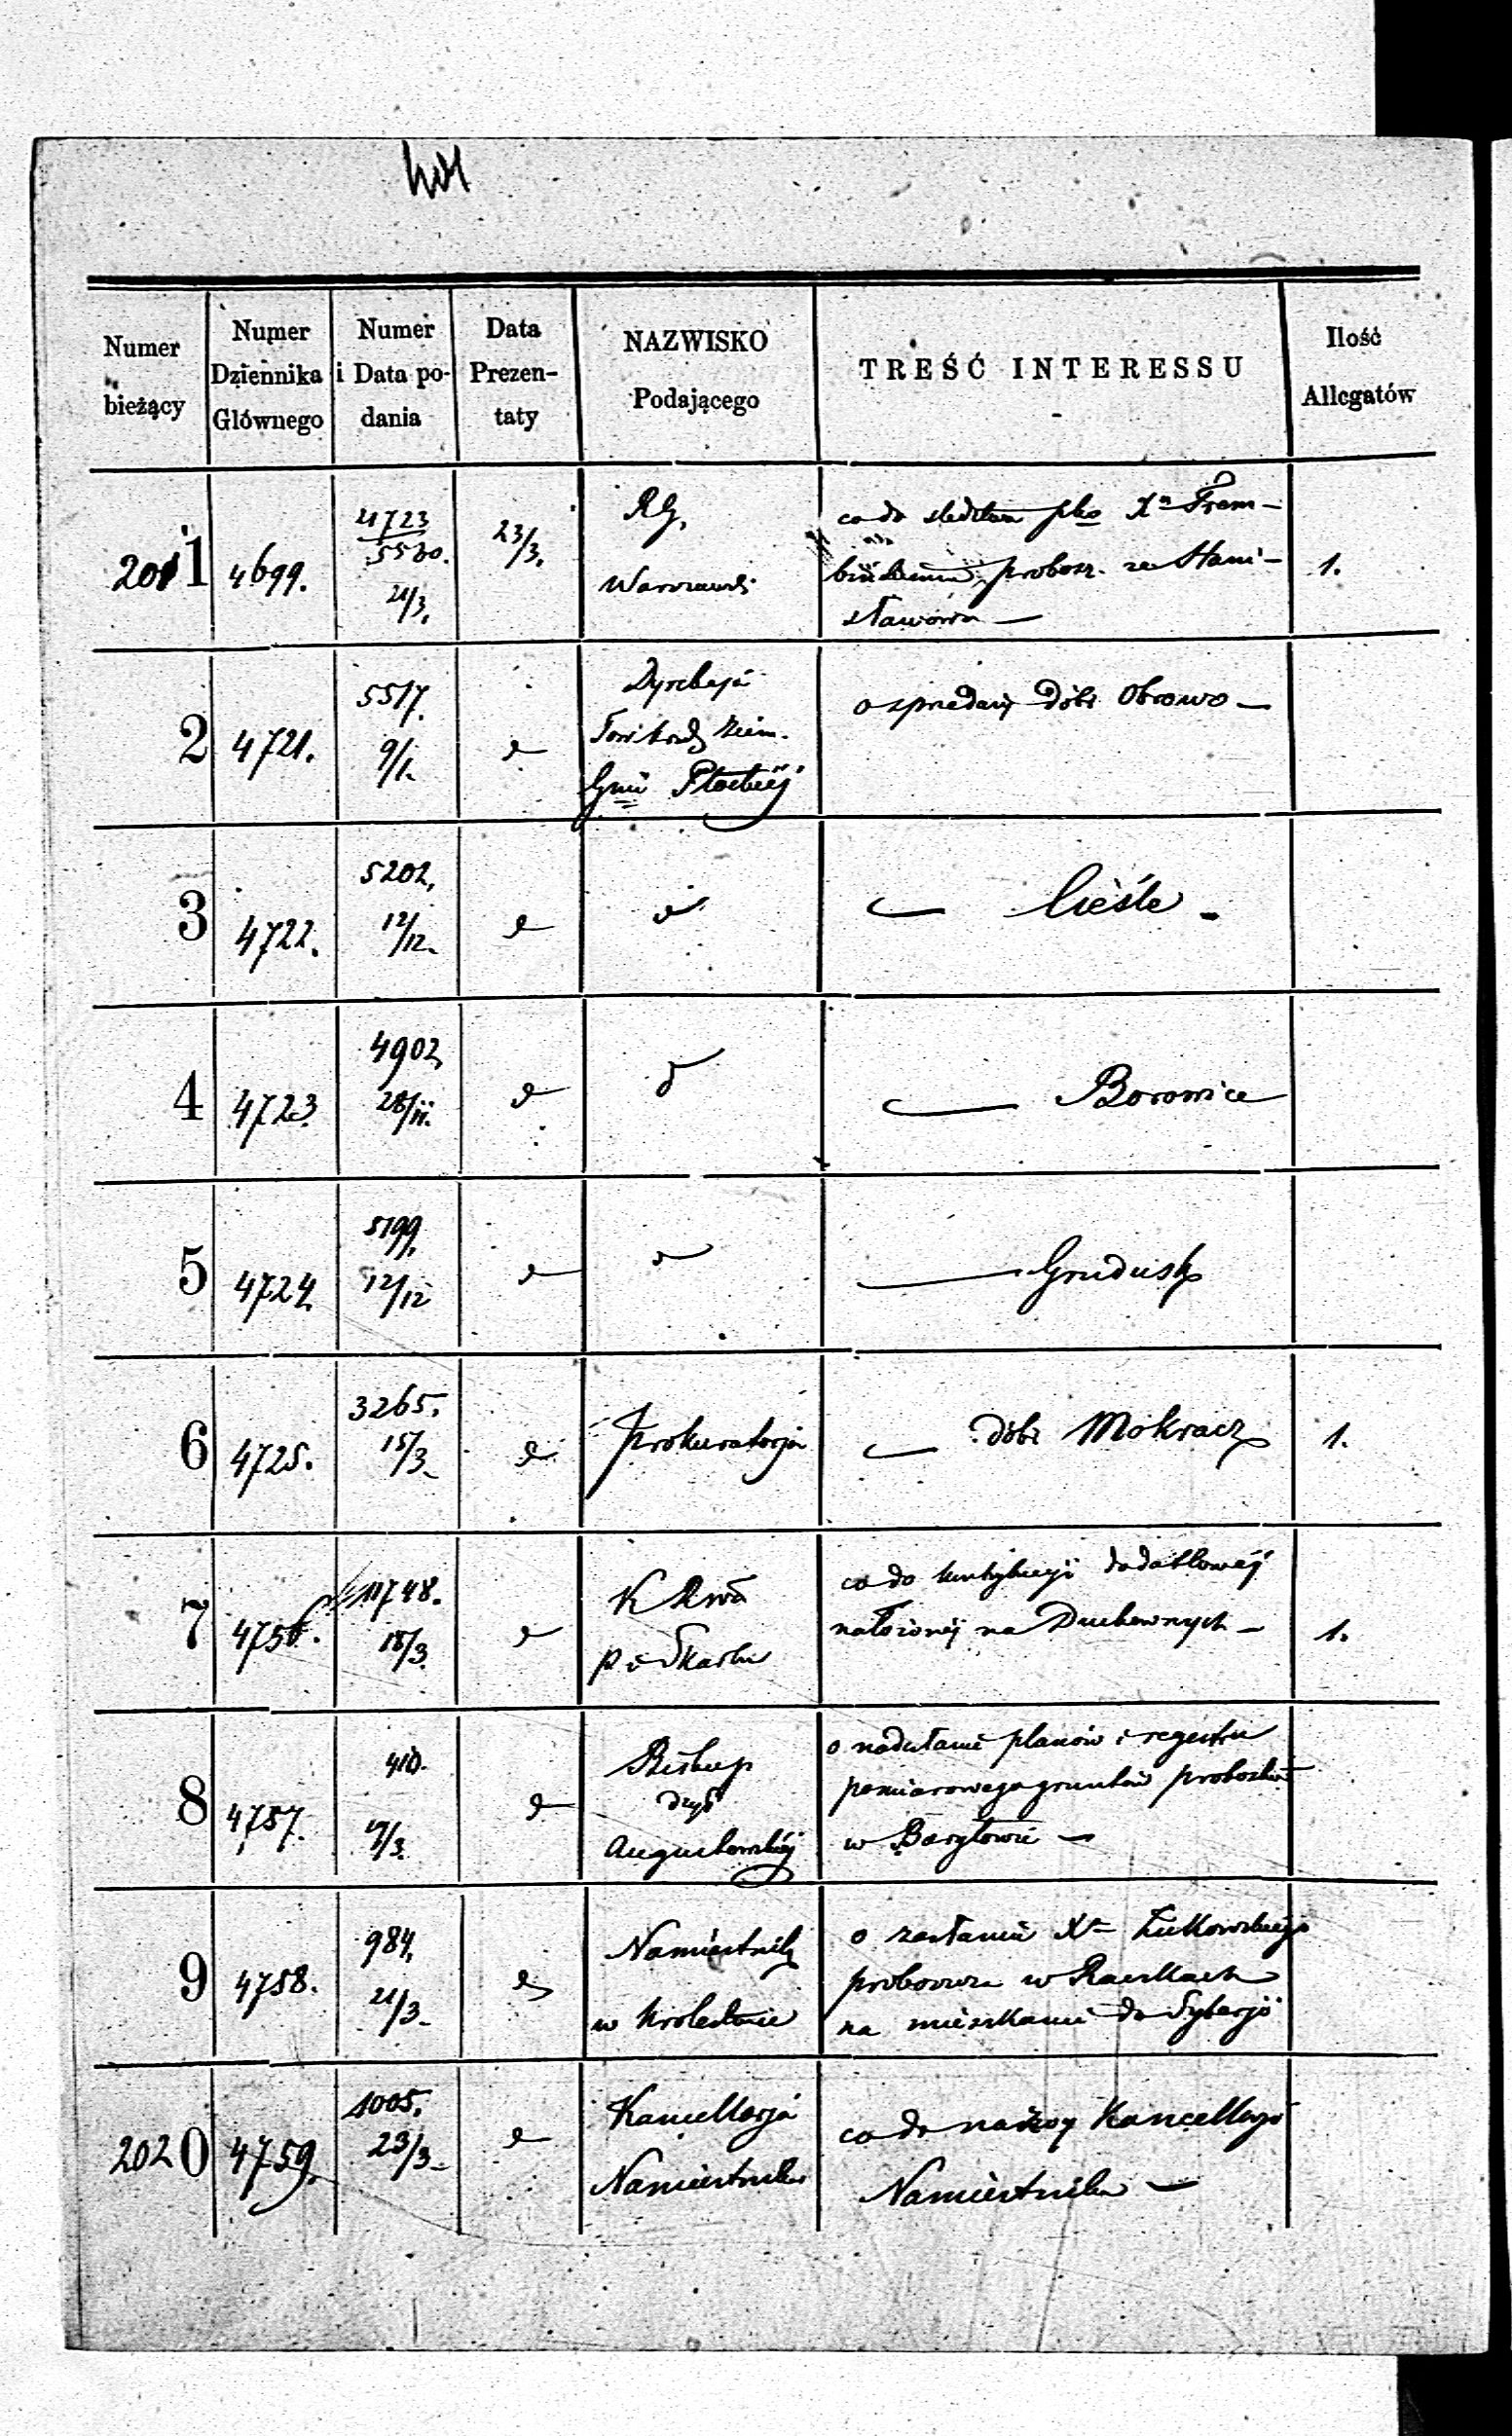 Numer bieżący
Numer Dziennika Głównego
Numer i Data podania
Data Prezentaty
NAZWISKO Podającego
TREŚĆ INTERESSU
Ilość Allegatów
2011
4699.
4723
5530.
21/3.
23/3.
RG.
Warszaws
co do śledztwa pko Xu Frem-
probosz. ze Stani-
sławowa —
1.
2
4721.
5517.
9/1.
d
Dyrekcja
Tow Kred Ziem.
Gnii Płockiej
o sprzedaży dóbr Obrowo —
3
4722.
5202.
12/12.
d
d
— Cieśle -
4
4723.
4902
28/11.
d
d
— Borowice
5
4724.
5199.
12/12
d
d
— Grudusk
6
4725.
3265.
15/3.
d
Prokuratorja
— dóbr Mokracz
1.
7
4756.
11748.
18/3.
d
K Rwa
P i Skarbu
co do kontrybucyi dodatkowej
nałożonej na Duchownych —
1.
8
4757.
410.
d
Biskup
dyec
Augustowskiej
o nadesłanie planów i regestru
pomiarowego gruntów probostwa
w —
9
4758.
984.
21/3.
d
Namiestnik
w Królestwie
o zesłaniu Xa Żukowskiego
proboszcza w Raczkach
na mieszkanie do Syberji
2020
4759.
1005.
23/3.
d
Kancellarja
Namiestnika
co do nazwy Kancellaryi
Namiestnika —